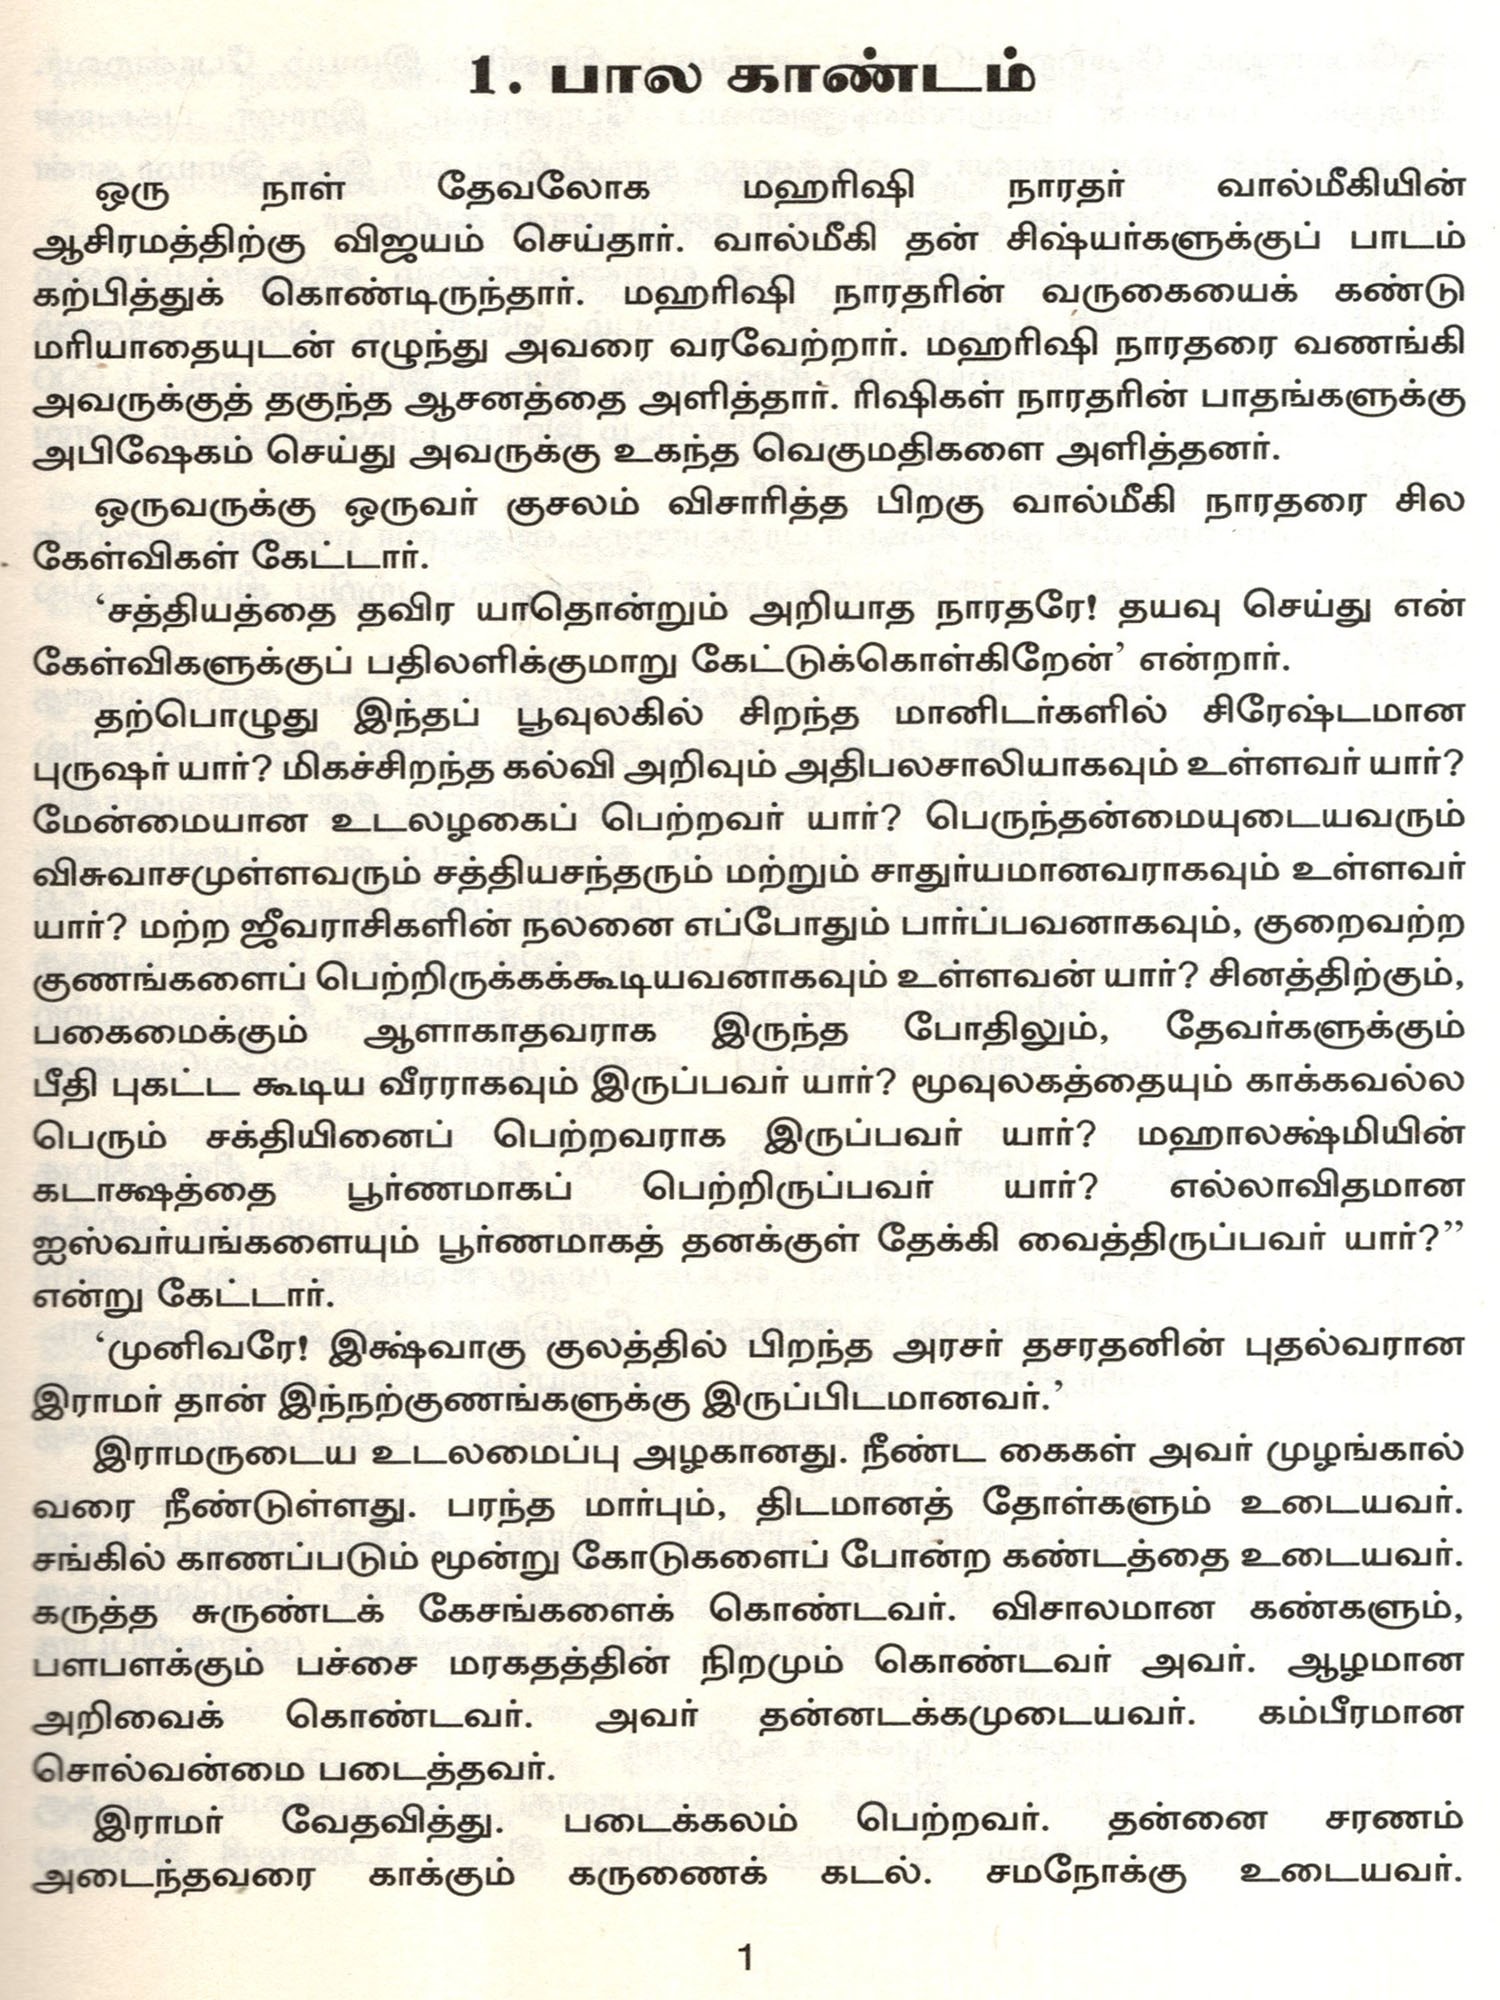 1. பால காண்டம்
ஒரு நாள் தேவலோக மஹரிஷி நாரதர் வால்மீகியின்
ஆசிரமத்திற்கு விஜயம் செய்தார். வால்மீகி தன் சிஷ்யர்களுக்குப் பாடம்
கற்பித்துக் கொண்டிருந்தார். மஹரிஷி நாரதரின் வருகையைக் கண்டு
மரியாதையுடன் எழுந்து அவரை வரவேற்றார். மஹரிஷி நாரதரை வணங்கி
அவருக்குத் தகுந்த ஆசனத்தை அளித்தார். ரிஷிகள் நாரதரின் பாதங்களுக்கு
அபிஷேகம் செய்து அவருக்கு உகந்த வெகுமதிகளை அளித்தனர்.
ஒருவருக்கு ஒருவர் குசலம் விசாரித்த பிறகு வால்மீகி நாரதரை சில
கேள்விகள் கேட்டார்.
‘சத்தியத்தை தவிர யாதொன்றும் அறியாத நாரதரே! தயவு செய்து என்
கேள்விகளுக்குப் பதிலளிக்குமாறு கேட்டுக்கொள்கிறேன்’ என்றார்.
தற்பொழுது இந்தப் பூவுலகில் சிறந்த மானிடர்களில் சிரேஷ்டமான
புருஷர் யார்? மிகச்சிறந்த கல்வி அறிவும் அதிபலசாலியாகவும் உள்ளவர் யார்?
மேன்மையான உடலழகைப் பெற்றவர் யார்? பெருந்தன்மையுடையவரும்
விசுவாசமுள்ளவரும் சத்தியசந்தரும் மற்றும் சாதுர்யமானவராகவும் உள்ளவர்
யார்? மற்ற ஜீவராசிகளின் நலனை எப்போதும் பார்ப்பவனாகவும், குறைவற்ற
குணங்களைப் பெற்றிருக்கக்கூடியவனாகவும் உள்ளவன் யார்? சினத்திற்கும்,
பகைமைக்கும் ஆளாகாதவராக இருந்த போதிலும், தேவர்களுக்கும்
பீதி புகட்ட கூடிய வீரராகவும் இருப்பவர் யார்? மூவுலகத்தையும் காக்கவல்ல
பெரும் சக்தியினைப் பெற்றவராக இருப்பவர் யார்? மஹாலக்ஷ்மியின்
கடாக்ஷத்தை பூர்ணமாகப் பெற்றிருப்பவர் யார்? எல்லாவிதமான
ஐஸ்வர்யங்களையும் பூர்ணமாகத் தனக்குள் தேக்கி வைத்திருப்பவர் யார்?”
என்று கேட்டார்.
‘முனிவரே! இக்ஷ்வாகு குலத்தில் பிறந்த அரசர் தசரதனின் புதல்வரான
இராமர் தான் இந்நற்குணங்களுக்கு இருப்பிடமானவர்.’
இராமருடைய உடலமைப்பு அழகானது. நீண்ட கைகள் அவர் முழங்கால்
வரை நீண்டுள்ளது. பரந்த மார்பும், திடமானத் தோள்களும் உடையவர்.
சங்கில் காணப்படும் மூன்று கோடுகளைப் போன்ற கண்டத்தை உடையவர்.
கருத்த சுருண்டக் கேசங்களைக் கொண்டவர். விசாலமான கண்களும்,
பளபளக்கும் பச்சை மரகதத்தின் நிறமும் கொண்டவர் அவர். ஆழமான
அறிவைக் கொண்டவர். அவர் தன்னடக்கமுடையவர். கம்பீரமான
சொல்வன்மை படைத்தவர்.
இராமர் வேதவித்து. படைக்கலம் பெற்றவர். தன்னை சரணம்
அடைந்தவரை காக்கும் கருணைக் கடல். சமநோக்கு உடையவர்.
1